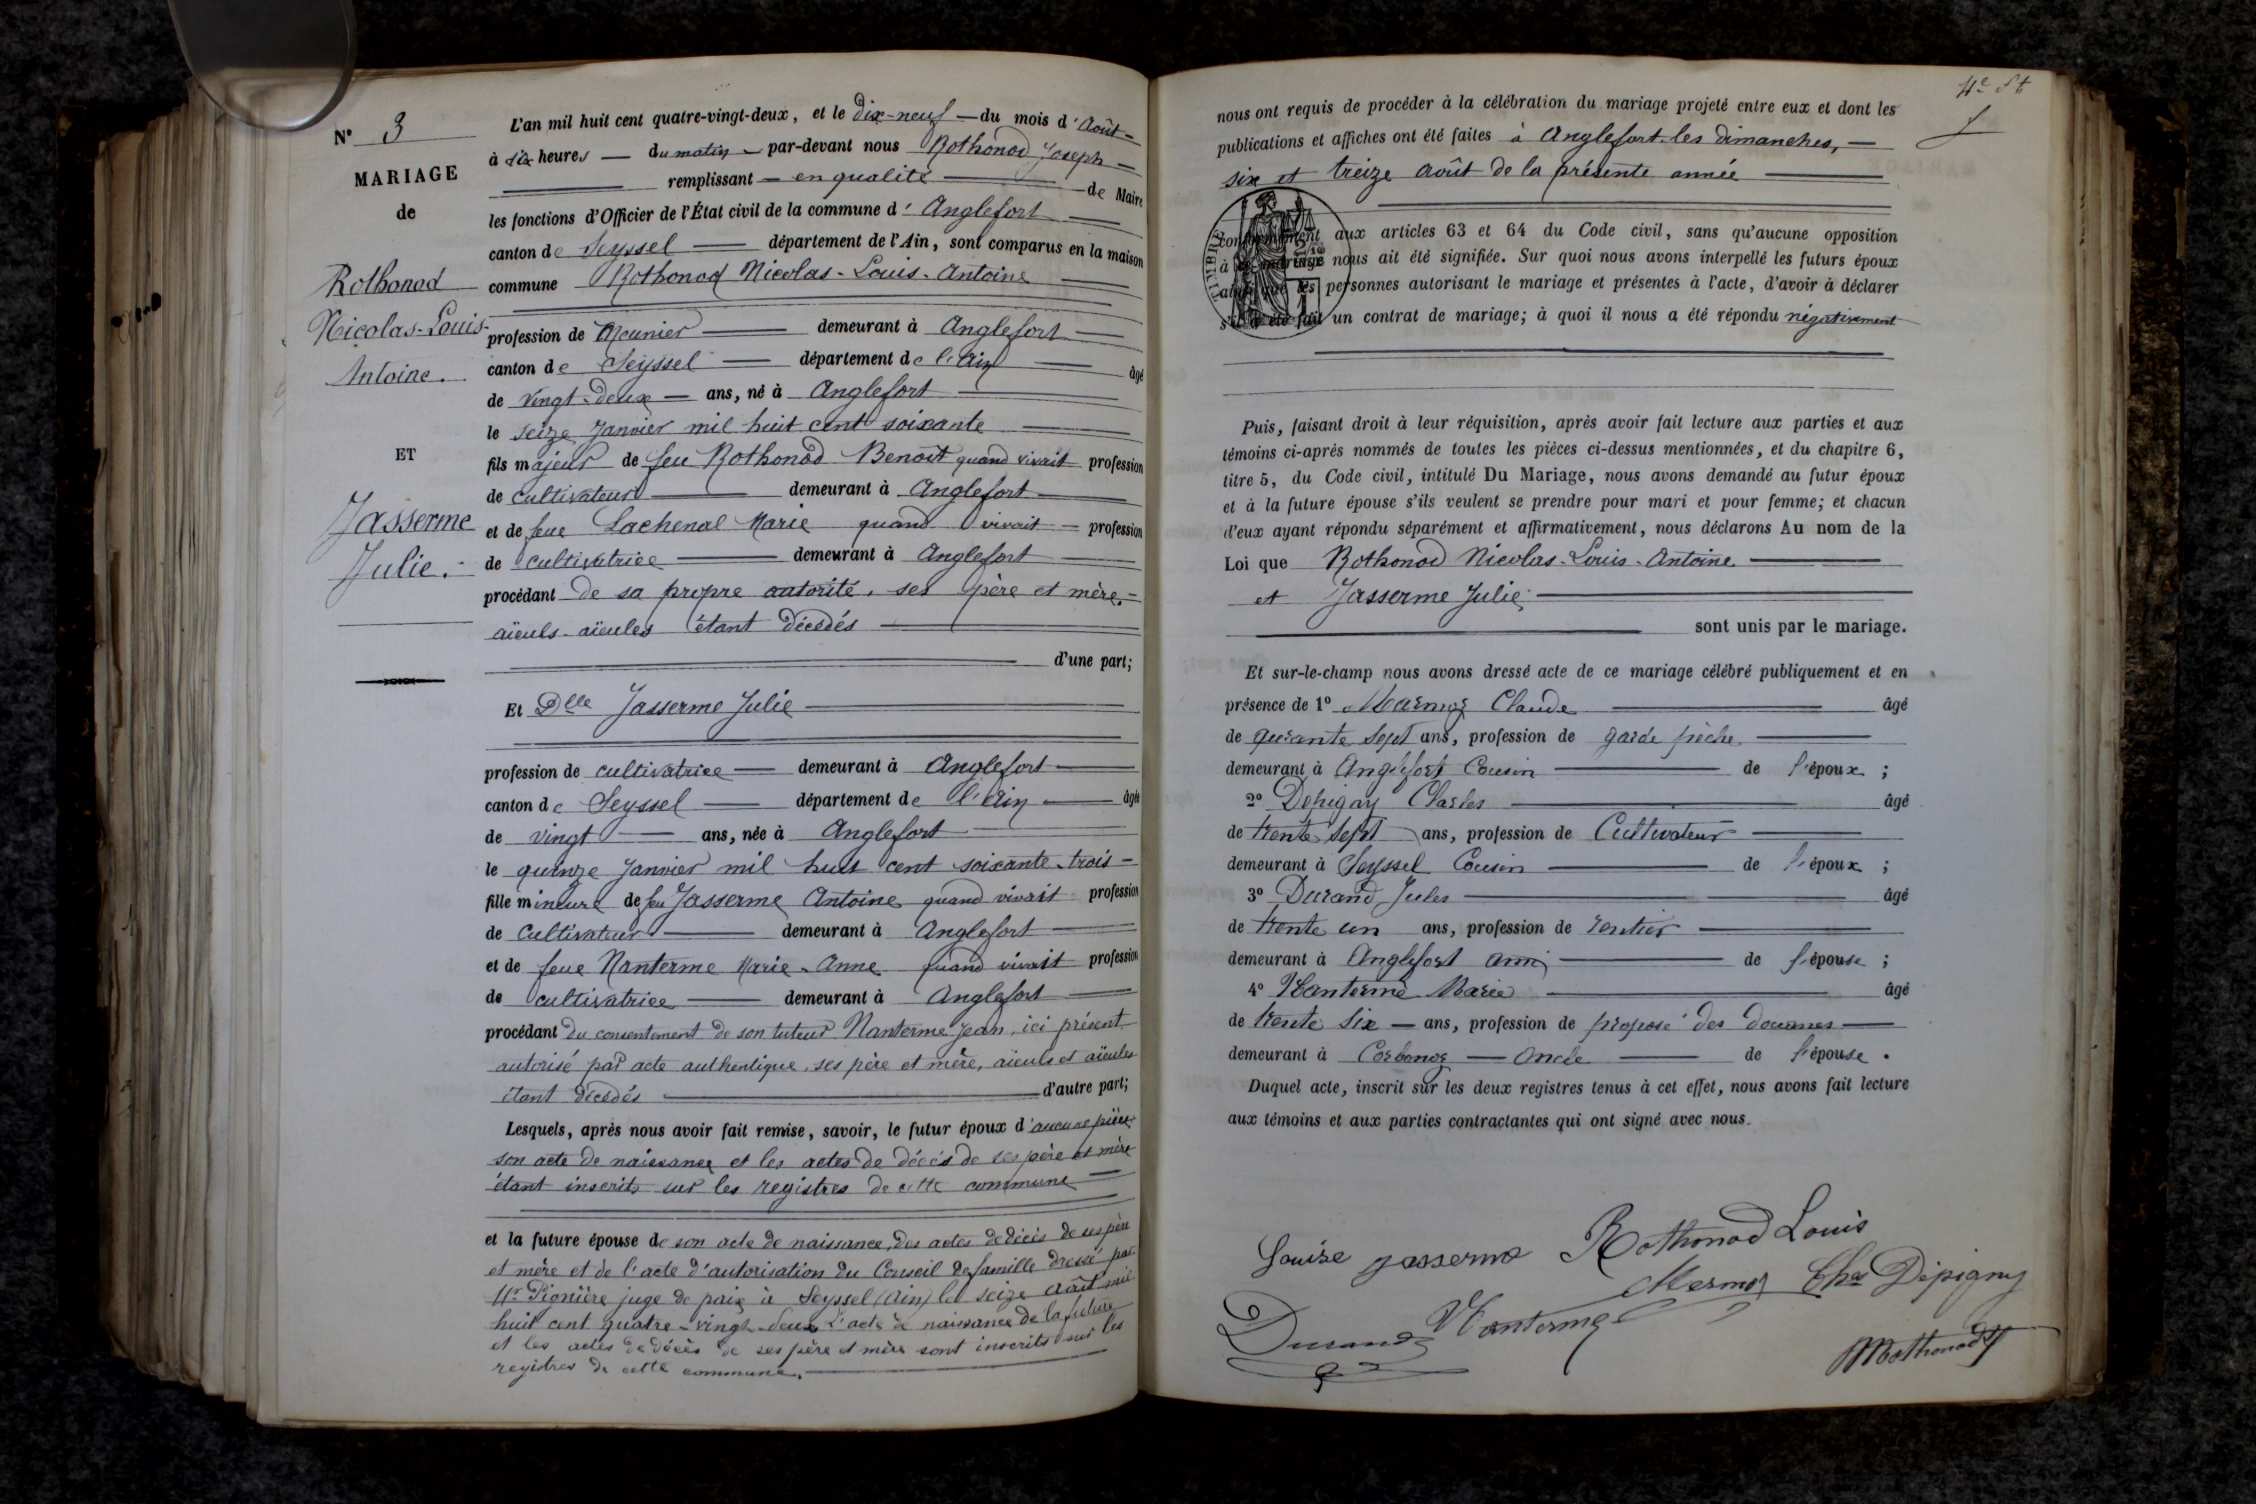 N° 3
MARIAGE
de
Rothonod
Nicolas-Louis-
Antoine.
ET
Jasserme
Julie.
L'an mil huit cent quatre-vingt-deux, et le dix-neuf du mois d'Août
à six heures du matin par-devant nous Rothonod Joseph
remplissant en qualité de Maire
les fonctions d'Officier de l'État civil de la commune d'Anglefort
canton de Seyssel département de l'Ain, sont comparus en la maison
commune Rothonod Nicolas-Louis-Antoine
profession de Meunier demeurant à Anglefort
canton de Seyssel département de l'Ain âgé
de vingt-deux ans, né à Anglefort
le seize Janvier mil huit cent soixante
fils majeur de feu Rothonod Benoît quand vivait profession
de cultivateur demeurant à Anglefort
et de feue Lachenal Marie quand vivait profession
de cultivatrice demeurant à Anglefort
procédant de sa propre autorité, ses père et mère,
aïeuls-aïeules étant décédés
d'une part;
Et Dlle Jasserme Julie
profession de cultivatrice demeurant à Anglefort
canton de Seyssel département de l'Ain âgée
de vingt ans, née à Anglefort
le quinze Janvier mil huit cent soixante-trois
fille mineure de feu Jasserme Antoine quand vivait profession
de cultivateur demeurant à Anglefort
et de feue Nanterme Marie-Anne quand vivait profession
de cultivatrice demeurant à Anglefort
procédant du consentement de son tuteur Nanterme Jean, ici présent
autorisé par acte authentique, ses père et mère, aïeuls et aïeules
étant décédés d'autre part;
Lesquels, après nous avoir fait remise, savoir, le futur époux d'aucune pièce,
son acte de naissance et les actes de décès de ses père et mère
étant inscrits sur les registres de cette commune
et la future épouse de son acte de naissance, des actes de décès de ses père
et mère et de l'acte d'autorisation du Conseil de famille dressé par
Mr juge de paix à Seyssel (Ain) le seize Août mil
huit cent quatre-vingt-deux L'acte de naissance de la future
et les actes de décès de ses père et mère sont inscrits sur les
registres de cette commune.
nous ont requis de procéder à la célébration du mariage projeté entre eux et dont les
publications et affiches ont été faites à Anglefort les dimanches,
six et treize août de la présente année
TIMBRE
conformément aux articles 63 et 64 du Code civil, sans qu'aucune opposition
à ce mariage nous ait été signifiée. Sur quoi nous avons interpellé les futurs époux
ainsi que les personnes autorisant le mariage et présentes à l'acte, d'avoir à déclarer
s'il a été fait un contrat de mariage; à quoi il nous a été répondu négativement
Puis, faisant droit à leur réquisition, après avoir fait lecture aux parties et aux
témoins ci-après nommés de toutes les pièces ci-dessus mentionnées, et du chapitre 6,
titre 5, du Code civil, intitulé Du Mariage, nous avons demandé au futur époux
et à la future épouse s'ils veulent se prendre pour mari et pour femme; et chacun
d'eux ayant répondu séparément et affirmativement, nous déclarons Au nom de la
Loi que Rothonod Nicolas-Louis-Antoine
et Jasserme Julie
sont unis par le mariage.
Et sur-le-champ nous avons dressé acte de ce mariage célébré publiquement et en
présence de 1° Claude âgé
de quarante sept ans, profession de garde pêche
demeurant à Anglefort Cousin de l'époux ;
2° Dépigny Charles âgé
de trente sept ans, profession de Cultivateur
demeurant à Seyssel Cousin de l'époux ;
3° Durand Jules âgé
de trente un ans, profession de rentier
demeurant à Anglefort ami de l'épouse ;
4° Nanterme Marie âgé
de trente six ans, profession de préposé des douanes
demeurant à Corbonoz Oncle de l'épouse.
Duquel acte, inscrit sur les deux registres tenus à cet effet, nous avons fait lecture
aux témoins et aux parties contractantes qui ont signé avec nous.
Louise Jasserme Rothonod Louis
Mermoz Chs Dépigny
Durand Nanterme
Rothonod